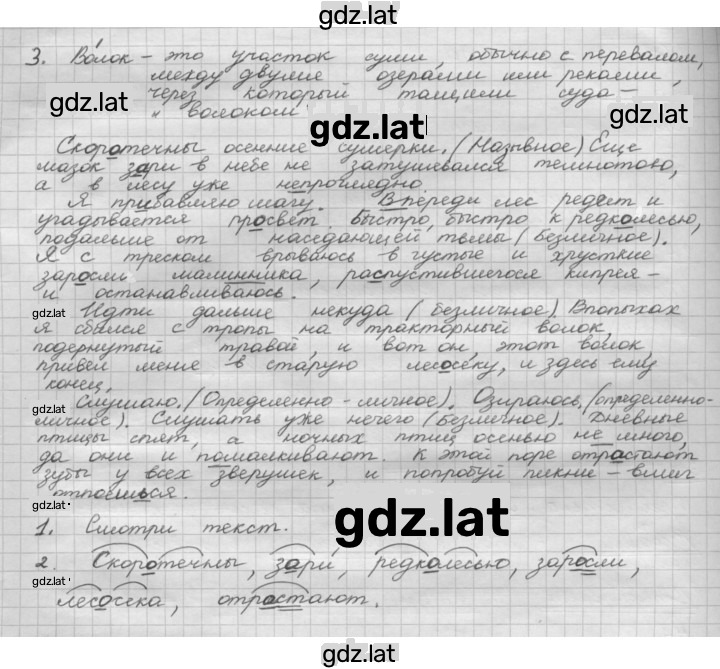 gdz.lat
3. Волок - это участок суши, обычно с перевалом,
между двумя озерами или реками,
через который тащили суда -
gdz.lat
"волоком"
gdz.lat
Скоротечны осенние сумерки. (Назывное) Еще
мазок зари в небе не затушевался темнотою,
а в лесу уже непроглядно.
Я прибавляю шагу. Впереди лес редеет и
угадывается просвет. Быстро, быстро к редколесью,
подальше от наседающей тьмы (безличное).
Я с треском врываюсь в густые и хрусткие
заросли малинника, распустившегося кипрея -
и останавливаюсь.
gdz.lat
Идти дальше некуда (безличное). Впопыхах
я сбился с тропы на тракторный волок,
подернутый травой, и вот он этот волок
привел меня в старую лесосеку, и здесь ему
конец.
gdz.lat
Слушаю. (Определенно - личное). Озираюсь. (определенно-
личное). Слушать уже нечего (безличное). Дневные
птицы спят, а ночных птиц осенью не много,
да они и помалкивают. К этой поре отрастают
зубы у всех зверушек, и попробуй пикне - вмиг
gdz.lat
1. Смотри текст.
gdz.lat
2. Скоротечны, зари, редколесью, заросли,
gdz.lat
лесосека, отрастают.
gdz.lat